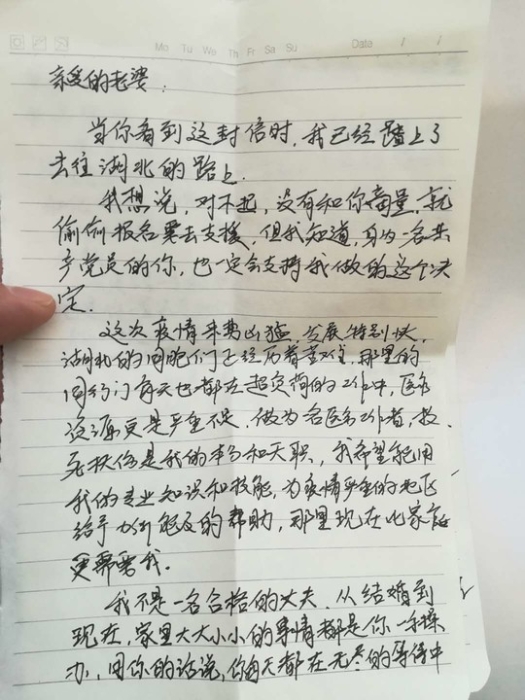 Mo Tu We Th Fr Sa Su Date / /
亲爱的老婆：
当你看到这封信时，我已经踏上了
去往湖北的路上.
我想说，对不起，没有和你商量，就
偷偷报名要去支援，但我知道，身为一名共
产党员的你，也一定会支持我做的这个决
定.
这次疫情来势凶猛，发展特别快，
湖北的同胞们正经历着艰难，那里的
同行们每天也都在超负荷的工作中，医疗
资源更是严重不足，做为名医务工作者，救
死扶伤是我的本分和天职，我希望能用
我的专业知识和技能，为疫情严重的地区
给予力所能及的帮助，那里现在比家庭
更需要我.
我不是一名合格的丈夫，从结婚到
现在，家里大大小小的事情都是你一手操
办，用你的话说，你每天都在无尽的等待中